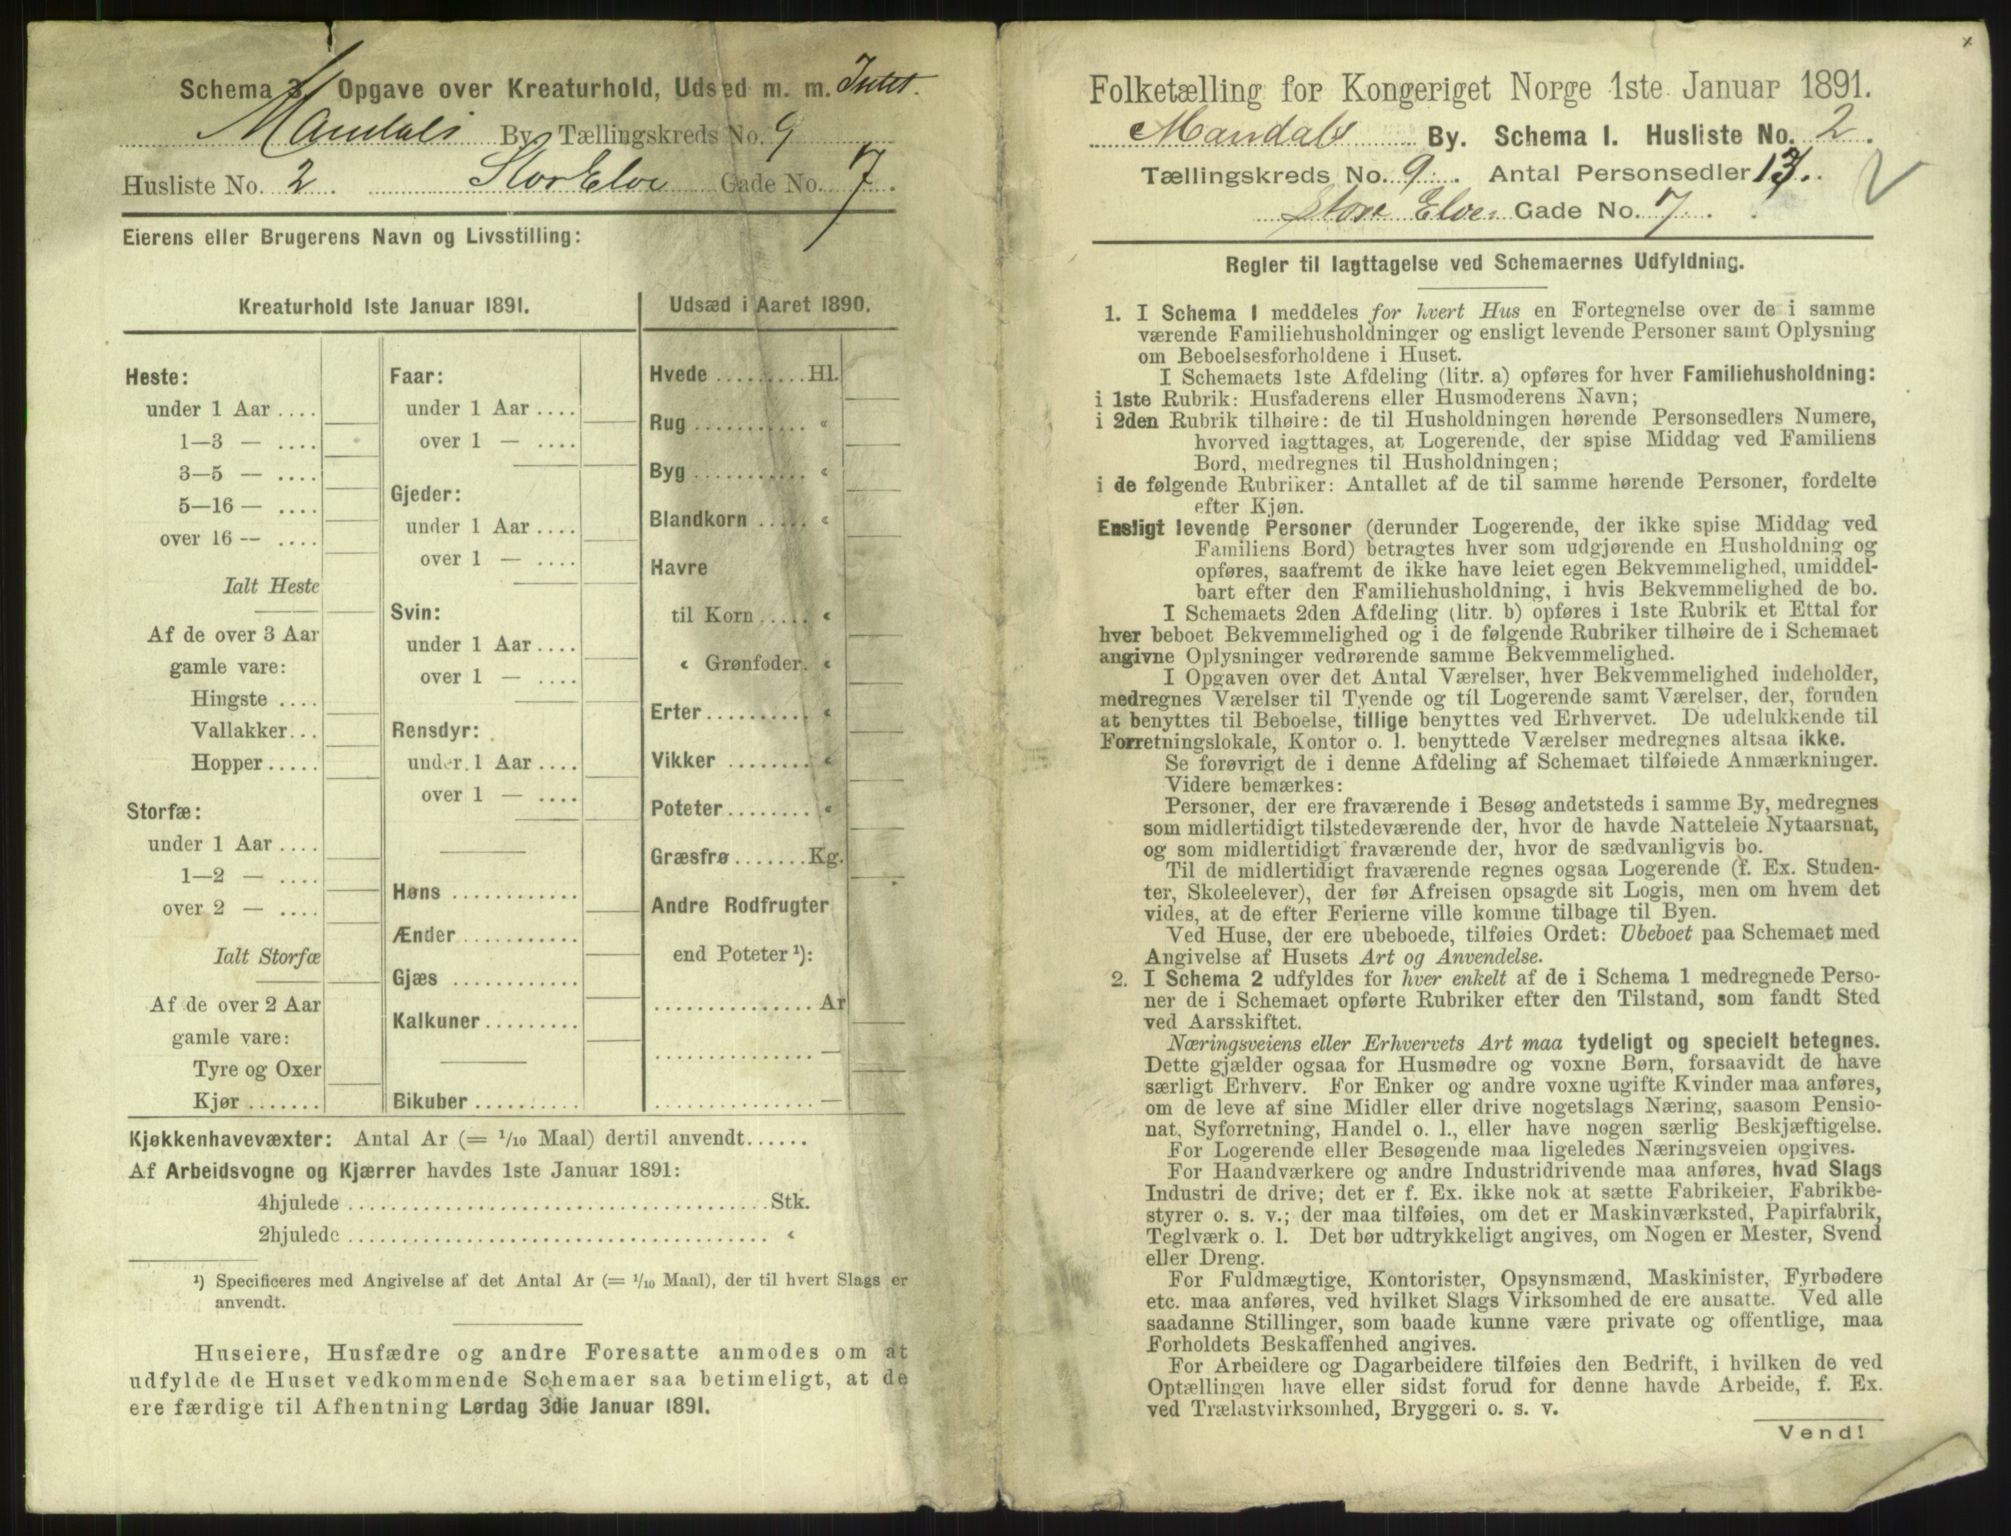 Schema 3. Opgave over Kreaturhold, Udsæd m. m. Intet.
Mandals By Tællingskreds No. 9
Husliste No. 2. Stor Elve Gade No. 7.
Eierens eller Brugerens Navn og Livsstilling:
Kreaturhold 1ste Januar 1891.
Heste:
under 1 Aar ....
1—3 — ....
3—5 — ....
5—16 — ....
over 16 — ....
Ialt Heste
Af de over 3 Aar
gamle vare:
Hingste ....
Vallakker...
Hopper.....
Storfæ:
under 1 Aar ....
1—2 — ....
over 2 — ....
Ialt Storfæ
Af de over 2 Aar
gamle vare:
Tyre og Oxer
Kjør .......
Faar:
under 1 Aar ....
over 1 — ....
Gjeder:
under 1 Aar ....
over 1 — ....
Svin:
under 1 Aar ....
over 1 — ....
Rensdyr:
under 1 Aar ....
over 1 — ....
Høns ............
Ænder...........
Gjæs ............
Kalkuner.........
Bikuber ..........
Udsæd i Aaret 1890.
Hvede .........Hl.
Rug ........... «
Byg ........... «
Blandkorn ..... «
Havre
til Korn ..... «
« Grønfoder. «
Erter.......... «
Vikker ........ «
Poteter........ «
Græsfrø .......Kg.
Andre Rodfrugter
end Poteter ¹):
............... Ar
............... —
............... —
Kjøkkenhavevæxter: Antal Ar (= 1/10 Maal) dertil anvendt......
Af Arbeidsvogne og Kjærrer havdes 1ste Januar 1891:
4hjulede ....................................Stk.
2hjulede .................................... «
¹) Specificeres med Angivelse af det Antal Ar (= 1/10 Maal), der til hvert Slags er
anvendt.
Huseiere, Husfædre og andre Foresatte anmodes om at
udfylde de Huset vedkommende Schemaer saa betimeligt, at de
ere færdige til Afhentning Lørdag 3die Januar 1891.
Folketælling for Kongeriget Norge 1ste Januar 1891.
Mandals By. Schema I. Husliste No. 2.
Tællingskreds No. 9. Antal Personsedler 13.
Store Elve Gade No. 7.
Regler til Iagttagelse ved Schemaernes Udfyldning.
1. I Schema 1 meddeles for hvert Hus en Fortegnelse over de i samme
værende Familiehusholdninger og ensligt levende Personer samt Oplysning
om Beboelsesforholdene i Huset.
I Schemaets 1ste Afdeling (litr. a) opføres for hver Familiehusholdning:
i 1ste Rubrik: Husfaderens eller Husmoderens Navn;
i 2den Rubrik tilhøire: de til Husholdningen hørende Personsedlers Numere,
hvorved iagttages, at Logerende, der spise Middag ved Familiens
Bord, medregnes til Husholdningen;
i de følgende Rubriker: Antallet af de til samme hørende Personer, fordelte
efter Kjøn.
Ensligt levende Personer (derunder Logerende, der ikke spise Middag ved
Familiens Bord) betragtes hver som udgjørende en Husholdning og
opføres, saafremt de ikke have leiet egen Bekvemmelighed, umiddel-
bart efter den Familiehusholdning, i hvis Bekvemmelighed de bo.
I Schemaets 2den Afdeling (litr. b) opføres i 1ste Rubrik et Ettal for
hver beboet Bekvemmelighed og i de følgende Rubriker tilhøire de i Schemaet
angivne Oplysninger vedrørende samme Bekvemmelighed.
I Opgaven over det Antal Værelser, hver Bekvemmelighed indeholder,
medregnes Værelser til Tyende og til Logerende samt Værelser, der, foruden
at benyttes til Beboelse, tillige benyttes ved Erhvervet. De udelukkende til
Forretningslokale, Kontor o. l. benyttede Værelser medregnes altsaa ikke.
Se forøvrigt de i denne Afdeling af Schemaet tilføiede Anmærkninger.
Videre bemærkes:
Personer, der ere fraværende i Besøg andetsteds i samme By, medregnes
som midlertidigt tilstedeværende der, hvor de havde Natteleie Nytaarsnat,
og som midlertidigt fraværende der, hvor de sædvanligvis bo.
Til de midlertidigt fraværende regnes ogsaa Logerende (f. Ex. Studen-
ter, Skoleelever), der før Afreisen opsagde sit Logis, men om hvem det
vides, at de efter Ferierne ville komme tilbage til Byen.
Ved Huse, der ere ubeboede, tilføies Ordet: Ubeboet paa Schemaet med
Angivelse af Husets Art og Anvendelse.
2. I Schema 2 udfyldes for hver enkelt af de i Schema 1 medregnede Perso-
ner de i Schemaet opførte Rubriker efter den Tilstand, som fandt Sted
ved Aarsskiftet.
Næringsveiens eller Erhvervets Art maa tydeligt og specielt betegnes.
Dette gjælder ogsaa for Husmødre og voxne Børn, forsaavidt de have
særligt Erhverv. For Enker og andre voxne ugifte Kvinder maa anføres,
om de leve af sine Midler eller drive nogetslags Næring, saasom Pensio-
nat, Syforretning, Handel o. l., eller have nogen særlig Beskjæftigelse.
For Logerende eller Besøgende maa ligeledes Næringsveien opgives.
For Haandværkere og andre Industridrivende maa anføres, hvad Slags
Industri de drive; det er f. Ex. ikke nok at sætte Fabrikeier, Fabrikbe-
styrer o. s. v.; der maa tilføies, om det er Maskinværksted, Papirfabrik,
Teglværk o. l. Det bør udtrykkeligt angives, om Nogen er Mester, Svend
eller Dreng.
For Fuldmægtige, Kontorister, Opsynsmænd, Maskinister, Fyrbødere
etc. maa anføres, ved hvilket Slags Virksomhed de ere ansatte. Ved alle
saadanne Stillinger, som baade kunne være private og offentlige, maa
Forholdets Beskaffenhed angives.
For Arbeidere og Dagarbeidere tilføies den Bedrift, i hvilken de ved
Optællingen have eller sidst forud for denne havde Arbeide, f. Ex.
ved Trælastvirksomhed, Bryggeri o. s. v.
Vend!